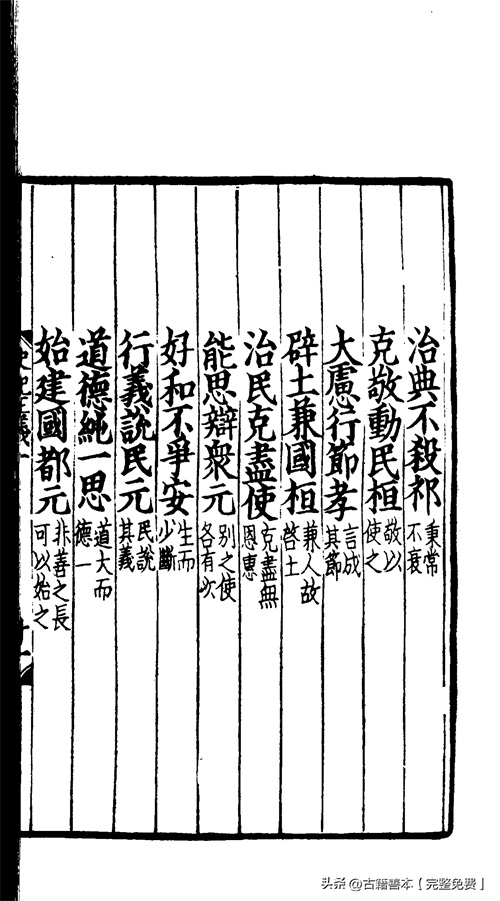 治典不殺祁 秉常不衰
克敬動民桓 敬以使之
大慮行節孝 言成其節
辟土兼國桓 兼人故啓土
治民克盡使 克盡無恩惠
能思辯衆元 別之使各有次
好和不爭安 生而少斷
行義說民元 民說其義
道德純一思 道大而德一
始建國都元 非善之長可以始之
头条 @古籍善本【完整免费】